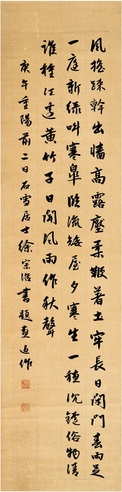 風搖踈幹出墻高露壓柔梢着土牢長日閉門春雨足
一庭新綠叫寒皋臨流矮屋夕寒生一種沉俗物清
誰種江邊黃竹子日聞風雨作秋聲
庚午重陽前二日石雪居士徐宗浩書題畫近作